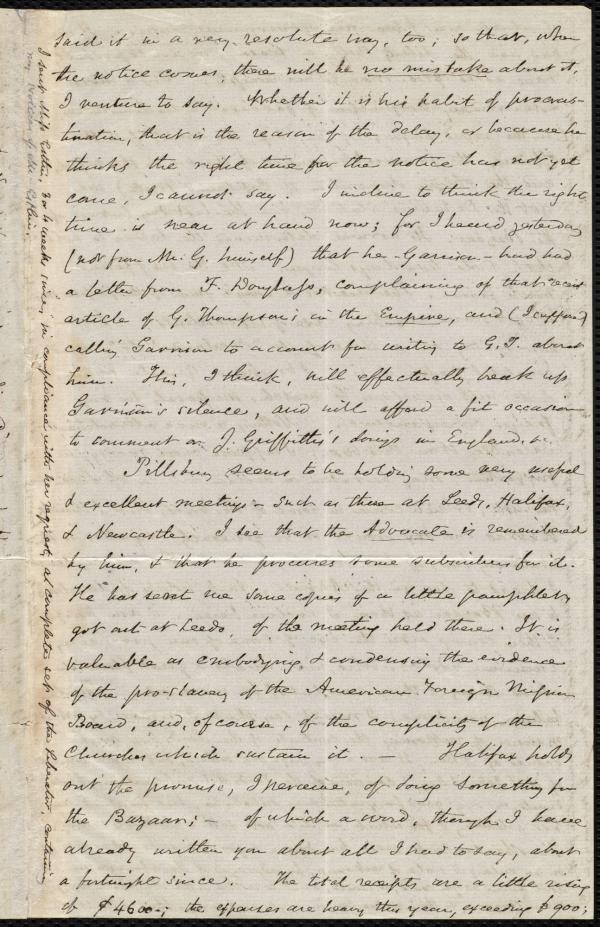 said it in a very resolute way, too; so that, when
the notice comes, there will be no mistake about it,
I venture to say. Whether it is his habit of procras-
tination, that is the reason of the delay, or because he
thinks the right time for the notice has not yet
come, I cannot say. I incline to think the right
time is near at hand now; for I heard yesterday
(not from Mr. G. himself) that he - Garrison - had had
a letter from F. Douglass, complaining of that recent
article of G. Thompson's in the Empire, and (I suppose)
calling Garrison to account for writing to G.T. about
him. This, I think, will effectually break up
Garrison's silence, and will afford a fit occasion
to comment on J. Griffitts's doings in England, &c.
Pillsbury seems to be holding some very useful
& excellent meetings - such as those at Leeds, Halifax,
& Newcastle. I see that the Advocate is remembered
by him, & that he procures some subscribers for it.
He has sent me some copies of a little pamphlet,
got out at Leeds, of the meeting held there. It is
valuable as embodying & condensing the evidence
of the pro-slavery of the American Foreign Mission
Board, and, of course, of the complicity of the
Churches which sustain it. — Halifax holds
out the promise, I perceive, of doing something for
the Bazaar; - of which a word, though I have
already written you about all I had to say, about
a fortnight since. The total receipts are a little rising
of $4600-; the expenses are heavy this year, exceeding $900;
I sent Miss Estlin 3 or 4 weeks since, in compliance with her request, a complete set of the Liberator, containing